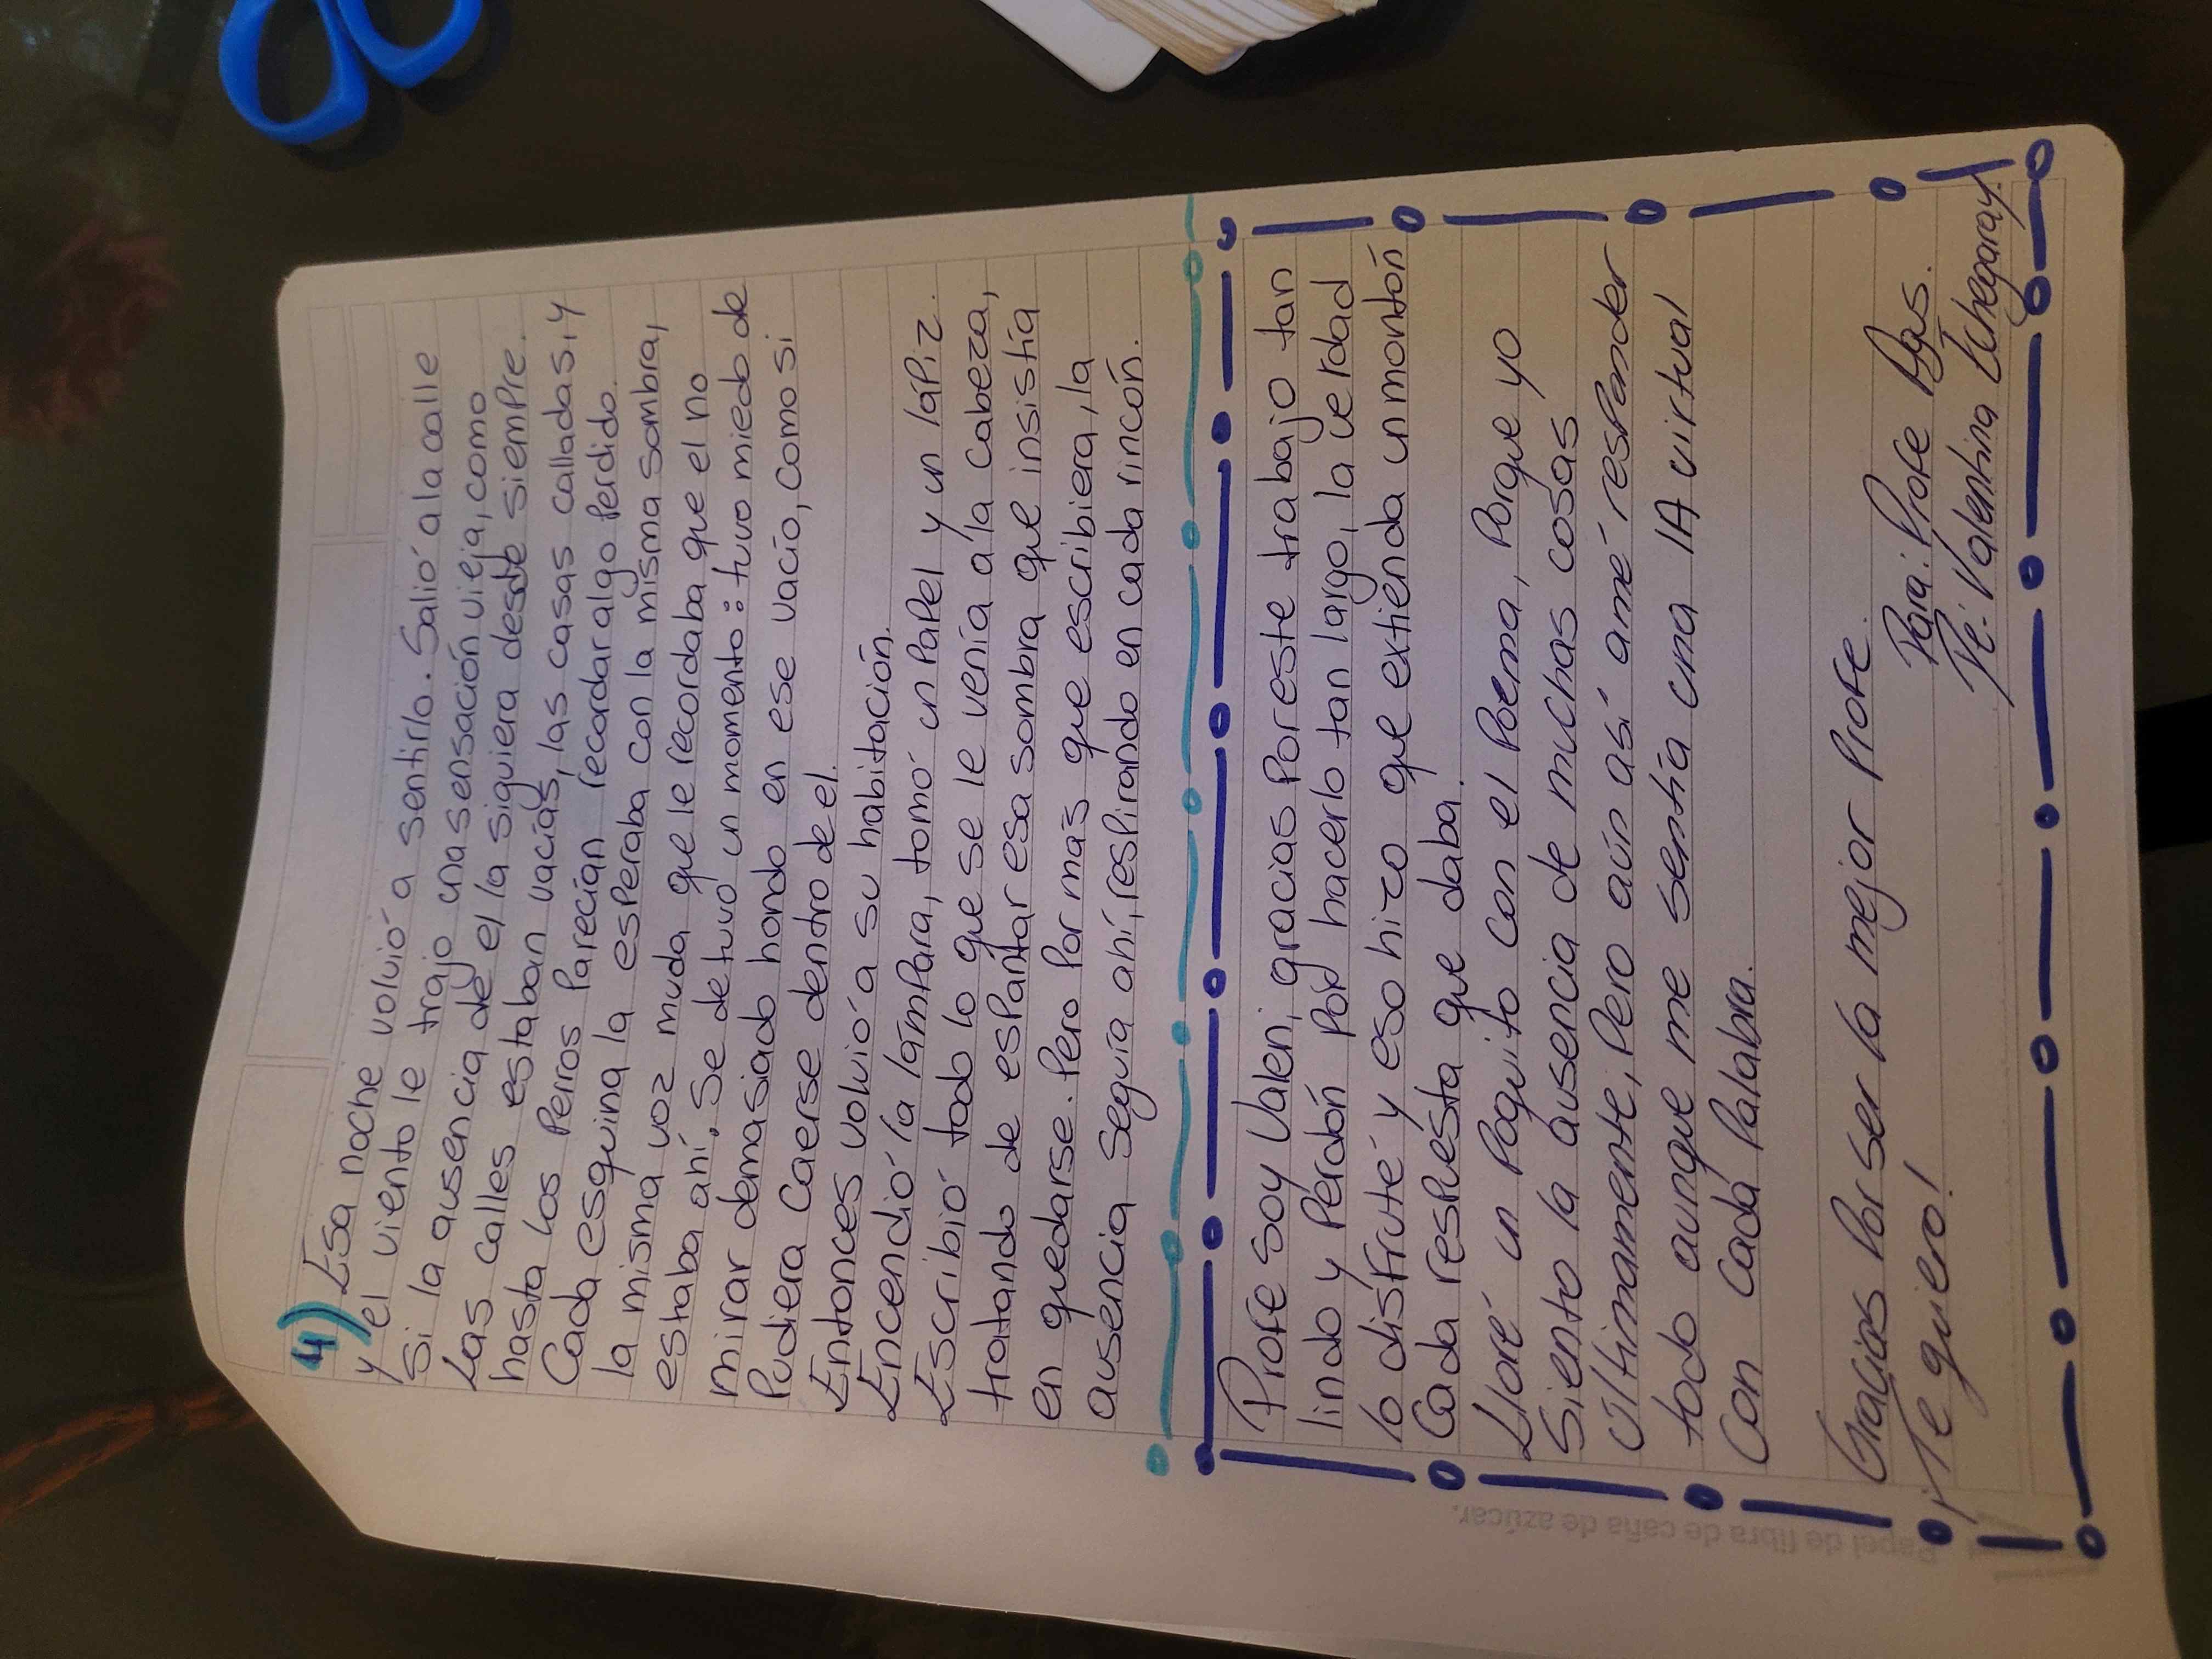 4) Esa noche volvió a sentirlo. Salió a la calle
y el viento le trajo una sensación vieja, como
si la ausencia de el la siguiera desde siempre.
Las calles estaban vacías, las casas calladas, y
hasta los perros parecían recordar algo perdido.
Cada esquina la esperaba con la misma sombra,
la misma voz muda que le recordaba que el no
estaba ahí. Se detuvo un momento: tuvo miedo de
mirar demasiado hondo en ese vacío, como si
pudiera caerse dentro de el.
Entonces volvió a su habitación.
Encendió la lámpara, tomó un papel y un lápiz.
Escribió todo lo que se le venía a la cabeza,
tratando de espantar esa sombra que insistía
en quedarse. Pero por más que escribiera, la
ausencia seguía ahí, respirando en cada rincón.
Profe soy Valen, gracias por este trabajo tan
lindo y perdón por hacerlo tan largo, la verdad
lo disfruté y eso hizo que extienda un montón
cada respuesta que daba!
Lloré un poquito con el poema, porque yo
siento la ausencia de muchas cosas
últimamente, pero aún así amé responder
todo aunque me sentía una IA virtual
con cada palabra.
Gracias por ser la mejor profe.
¡Te quiero!
Para: Profe Agus.
De: Valentina Uhegaray!
Papel de fibra de caña de azúcar.